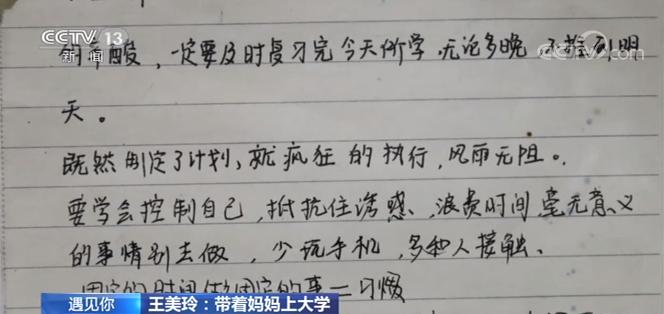 CCTV 13
新闻
央视网
的辛酸，一定要及时复习完今天所学，无论多晚，不推到明
天。
既然制定了计划，就疯狂的执行，风雨无阻。
要学会控制自己，抵抗住诱惑、浪费时间毫无意义
的事情别去做，少玩手机，多和人接触、
固定的时间做固定的事＝习惯
遇见你
王美玲：带着妈妈上大学